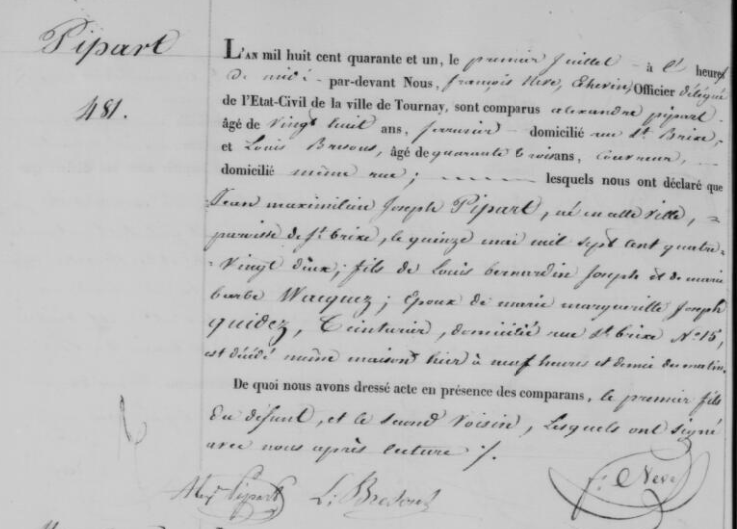 Pipart
481.
L'AN mil huit cent quarante et un, le premier Juillet - à l' heures
de midi - par-devant Nous, françois Neve, Echevin, Officier délégué
de l'Etat-Civil de la ville de Tournay, sont comparus alexandre pipart -
âgé de vingt huit ans, serrurier - domicilié rue St Brixe,
et Louis Bresous, âgé de quarante trois ans, Couvreur,
domicilié même rue; lesquels nous ont déclaré que
Jean maximilien Joseph Pipart, né en cette ville, =
paroisse de St brixe, le quinze mai mil sept cent quatre-
-vingt deux; fils de Louis bernardin Joseph et de marie
barbe Wacquez; Epoux de marie margueritte Joseph
quidez, Teinturier, domicilié rue St brixe No 15,
est décédé même maison hier à neuf heures et demie du matin.
De quoi nous avons dressé acte en présence des comparans, le premier fils
Du défunt, et le second Voisin, Lesquels ont signé
avec nous après lecture ./.
Alex Pipart L: Bresous f: Neve